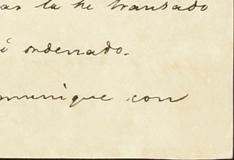 ar la he transado
i ordenado.
munique con